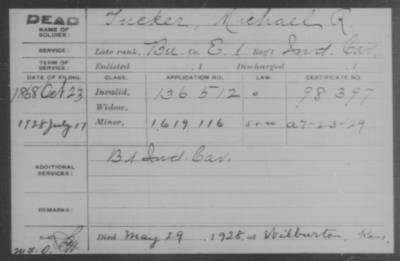 DEAD
NAME OF SOLDIER: Tucker, Michael R.
SERVICE: Late rank, Bu. Co. E, 1 Reg't Ind. Cav.
TERM OF SERVICE: Enlisted , 1 Discharged , 1
DATE OF FILING. CLASS. APPLICATION NO. LAW. CERTIFICATE NO.
1868 Oct 23 Invalid, 136 512 98 397
1928 July 17 Widow,
Minor, 1,619,116 a 7-23-29
ADDITIONAL SERVICES: B 1 Ind. Cav.
REMARKS:
Died May 29, 1928, at Wilburton, Kans.